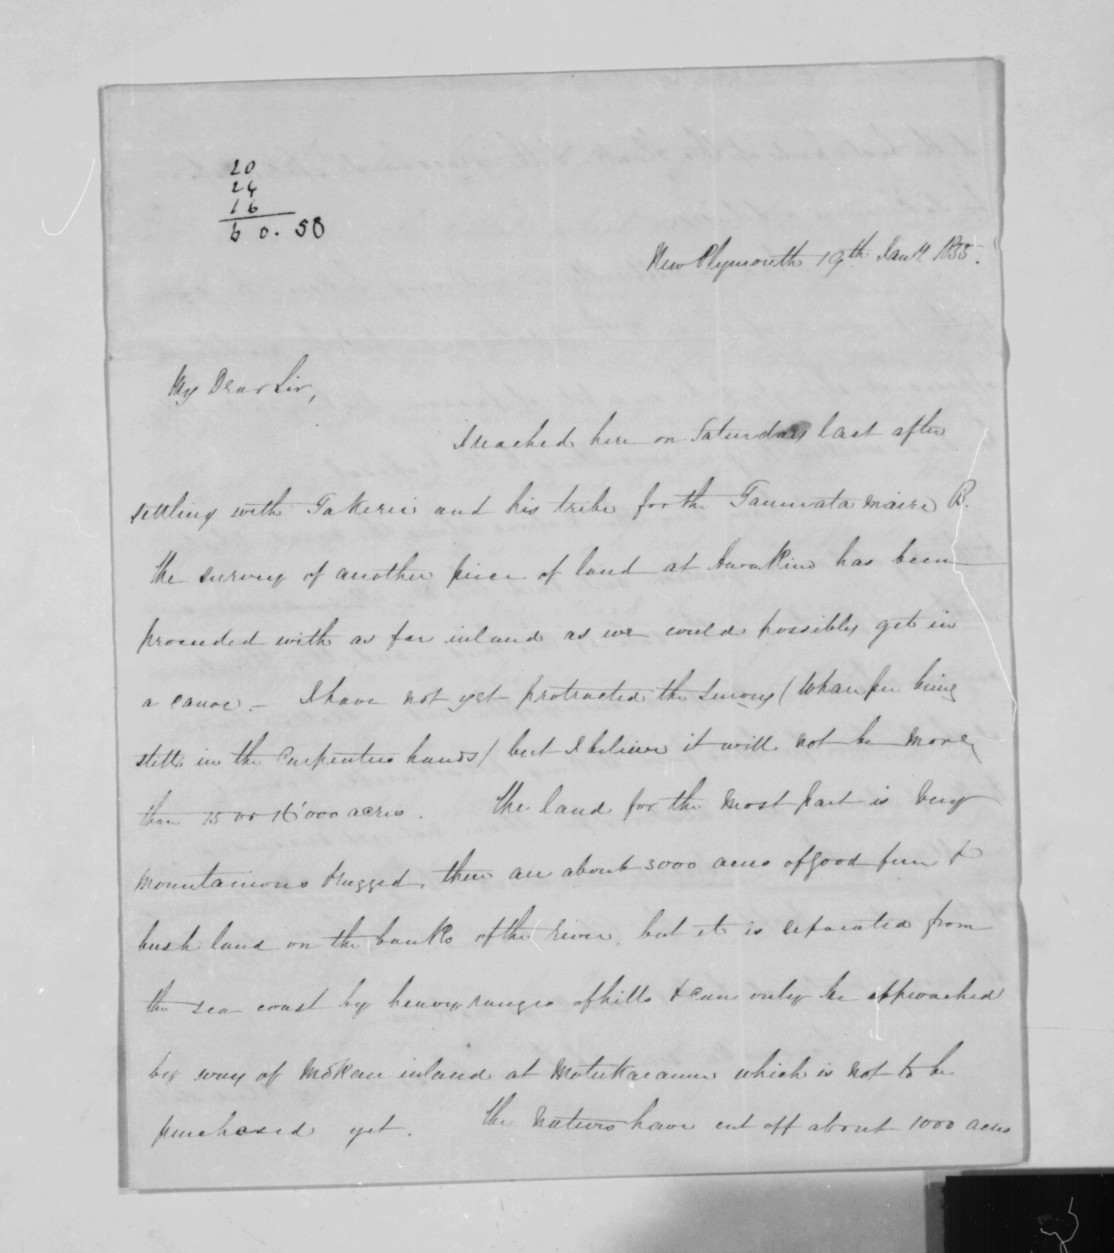 20
24
16
6 0 . 58
New Plymouth 19th Jany 1855.
My Dear Sir,
I reached here on Saturday last after
settling with Takerei and his tribe for the Taumatamaire B.
the survey of another piece of land at Awakino has been
proceeded with as far inland as we could possibly get in
a canoe. – I have not yet protracted the survey (Whare being
still in the Carpenters hands) but I believe it will not be more
than 15 or 16'000 acres. The land for the most part is very
mountainous & rugged, there are about 3000 acres of good fern &
bush land on the banks of the river, but it is separated from
the sea coast by heavy ranges of hills & can only be approached
by way of Mokau inland at Motukaramu which is not to be
purchased yet. The Natives have cut off about 1000 acres